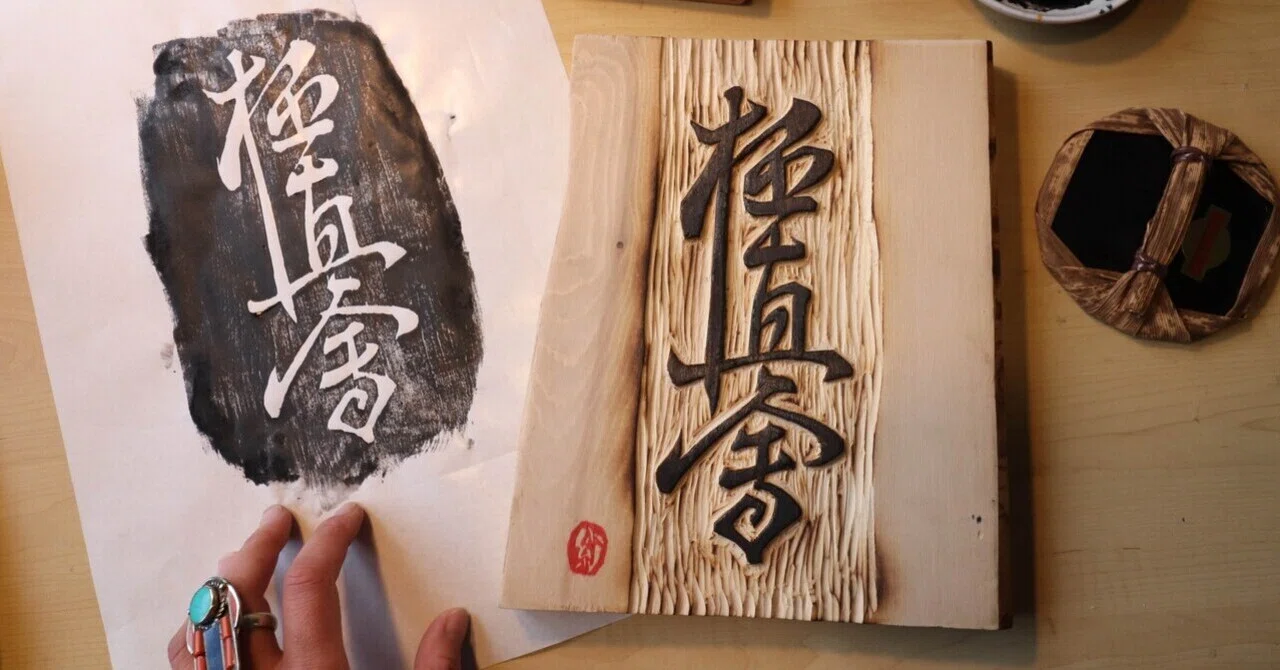 極真會
極真會